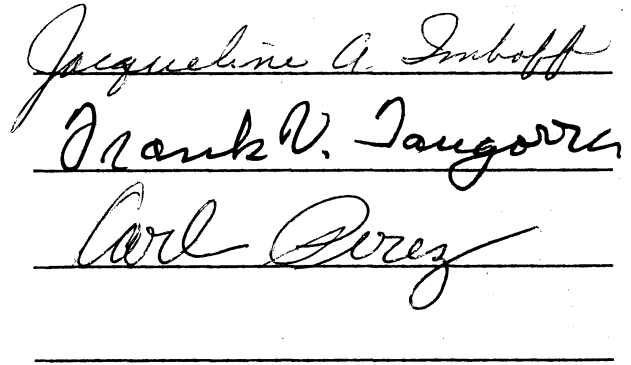 Jacqueline A. Imhoff
Frank V. Tangorra
Carl Perez